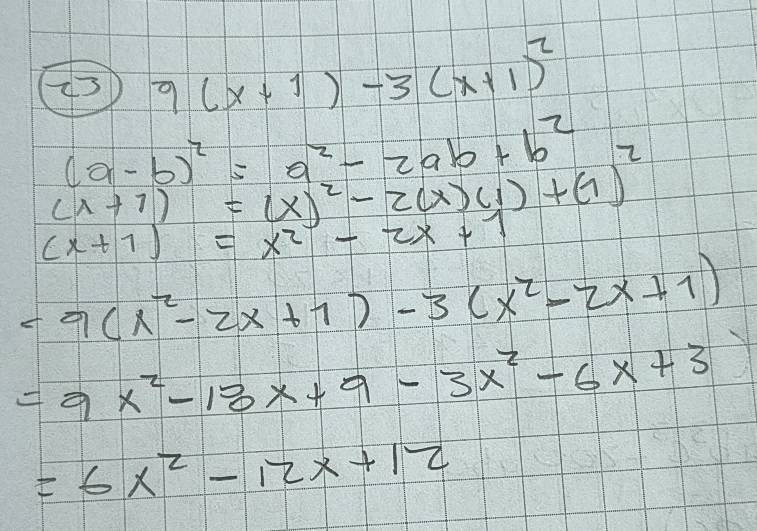 23) 9(x+1) -3(x+1)²
(a-b)² = a² - 2ab + b²
(x+1) = (x)² - 2(x)(1) + (1)²
(x+1) = x² - 2x + 1
= 9(x² - 2x + 1) - 3(x² - 2x + 1)
= 9x² - 18x + 9 - 3x² - 6x + 3
= 6x² - 12x + 12